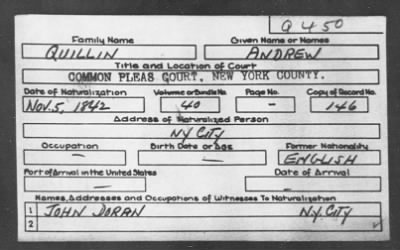 Q 450
Family Name Given Name or Names
QUILLIN ANDREW
Title and Location of Court
COMMON PLEAS COURT, NEW YORK COUNTY.
Date of Naturalization Volume or Bundle No. Page No. Copy of Record No.
NOV. 5, 1842 40 - 146
Address of Naturalized Person
NY CITY
Occupation Birth Date or Age Former Nationality
— — ENGLISH
Port of Arrival in the United States Date of Arrival
— —
Names, Addresses and Occupations of Witnesses To Naturalization
1 JOHN DORAN N.Y. CITY
2